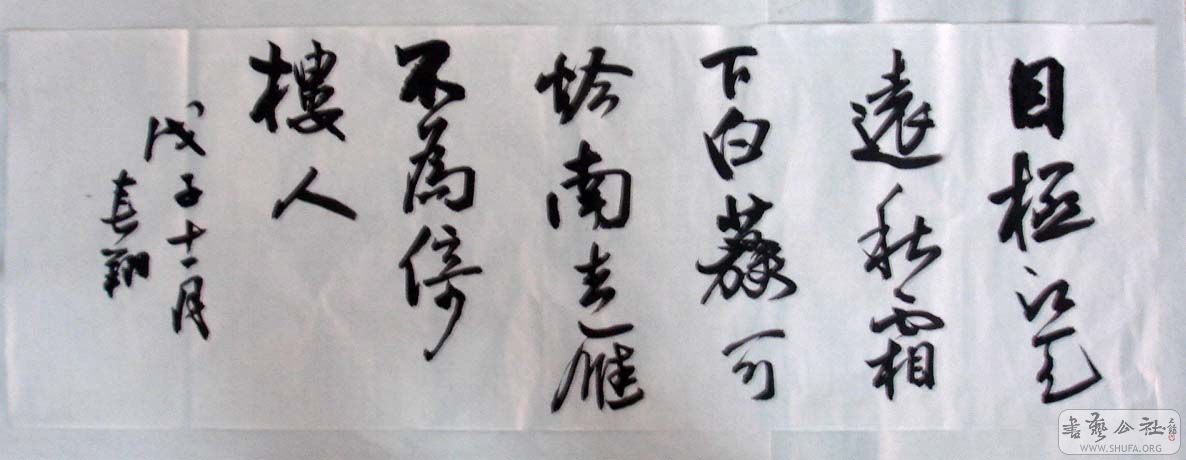 目極江天
遠秋霜
下白蘋可
怜南去雁
不為倚
樓人
戊子十一月
春翔
書藝公社
WWW.SHUFA.ORG